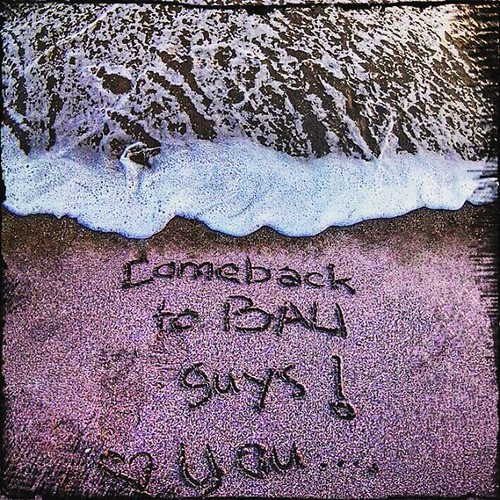 Comeback
to BALI
guys!
♡ you....